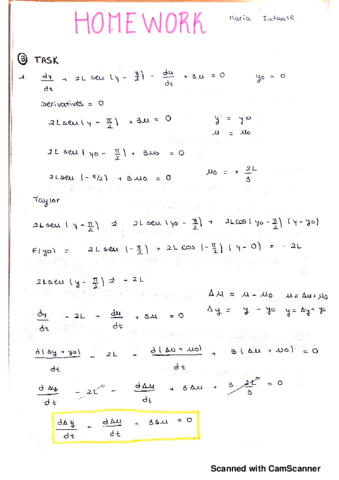 HOMEWORK
Maria Infante
③ TASK
1. dy/dt + 2L sen (y - π/2) - du/dt + 3u = 0 y₀ = 0
Derivatives = 0
2L sen (y - π/2) + 3u = 0 y = y₀
u = u₀
2L sen (y₀ - π/2) + 3u₀ = 0
2L sen (-π/2) + 3u₀ = 0 u₀ = + 2L/3
Taylor
2L sen (y - π/2) ≈ 2L sen (y₀ - π/2) + 2L cos (y₀ - π/2) (y - y₀)
F(y₀) = 2L sen (-π/2) + 2L cos (-π/2) (y - 0) = - 2L
2L sen (y - π/2) ≈ - 2L
Δu = u - u₀ u = Δu + u₀
dy/dt - 2L - du/dt + 3u = 0 Δy = y - y₀ y = Δy + y₀
d(Δy + y₀)/dt - 2L - d(Δu + u₀)/dt + 3(Δu + u₀) = 0
dΔy/dt - 2L - dΔu/dt + 3Δu + 3 · 2L/3 = 0
dΔy/dt - dΔu/dt + 3Δu = 0
Scanned with CamScanner